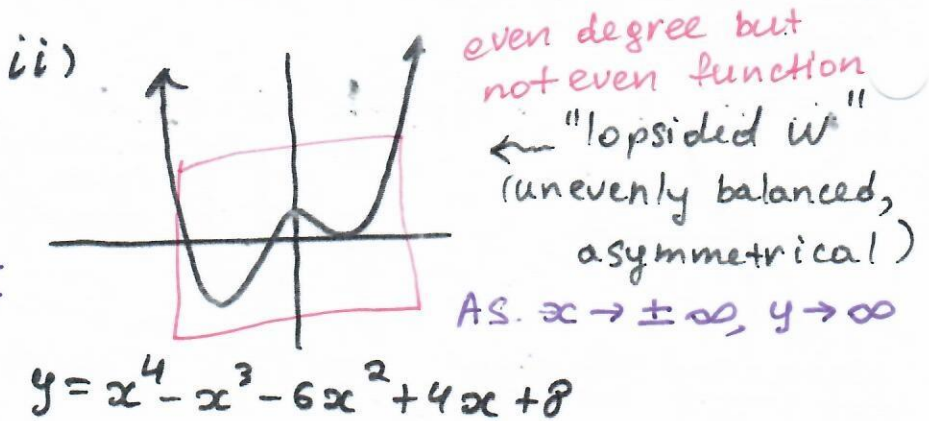 ii)
even degree but
not even function
← "lopsided W"
(unevenly balanced,
asymmetrical)
AS. x → ± ∞, y → ∞
y = x⁴ - x³ - 6x² + 4x + 8